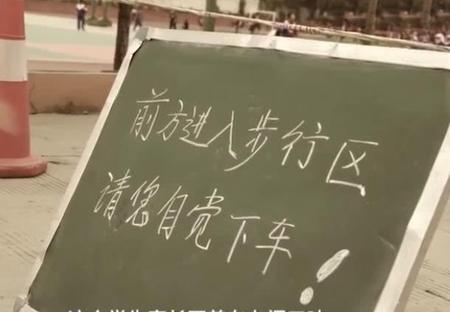 前方进入步行区
请您自觉下车！